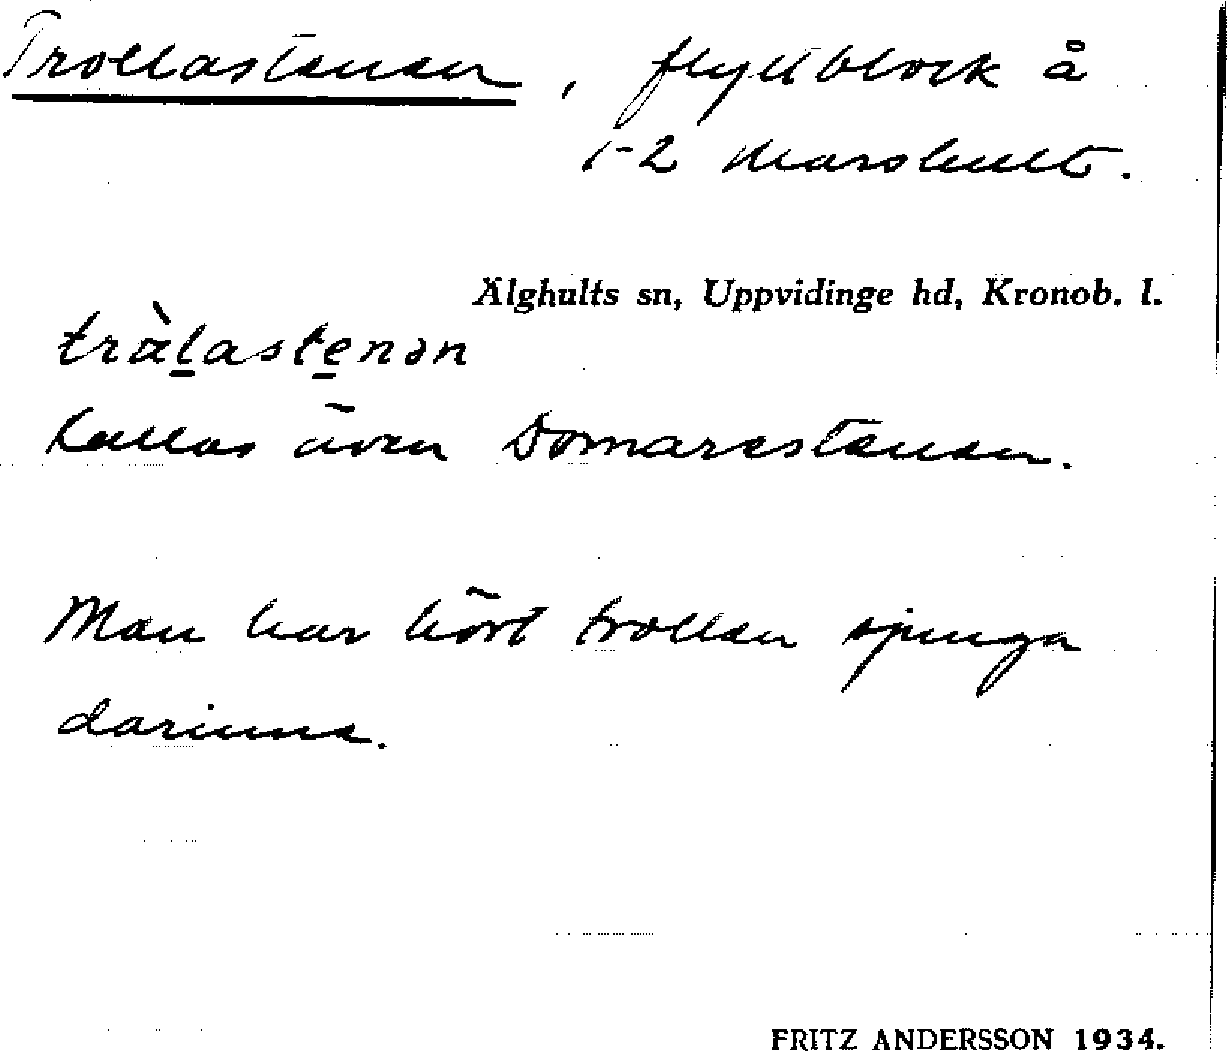 Trollastenen, flyttblock å
1-2 Marshult.
Älghults sn, Uppvidinge hd, Kronob. l.
tràlastenən
Kallas även Domarestenen.
Man har hört trollen sjunga
darinne.
FRITZ ANDERSSON 1934.